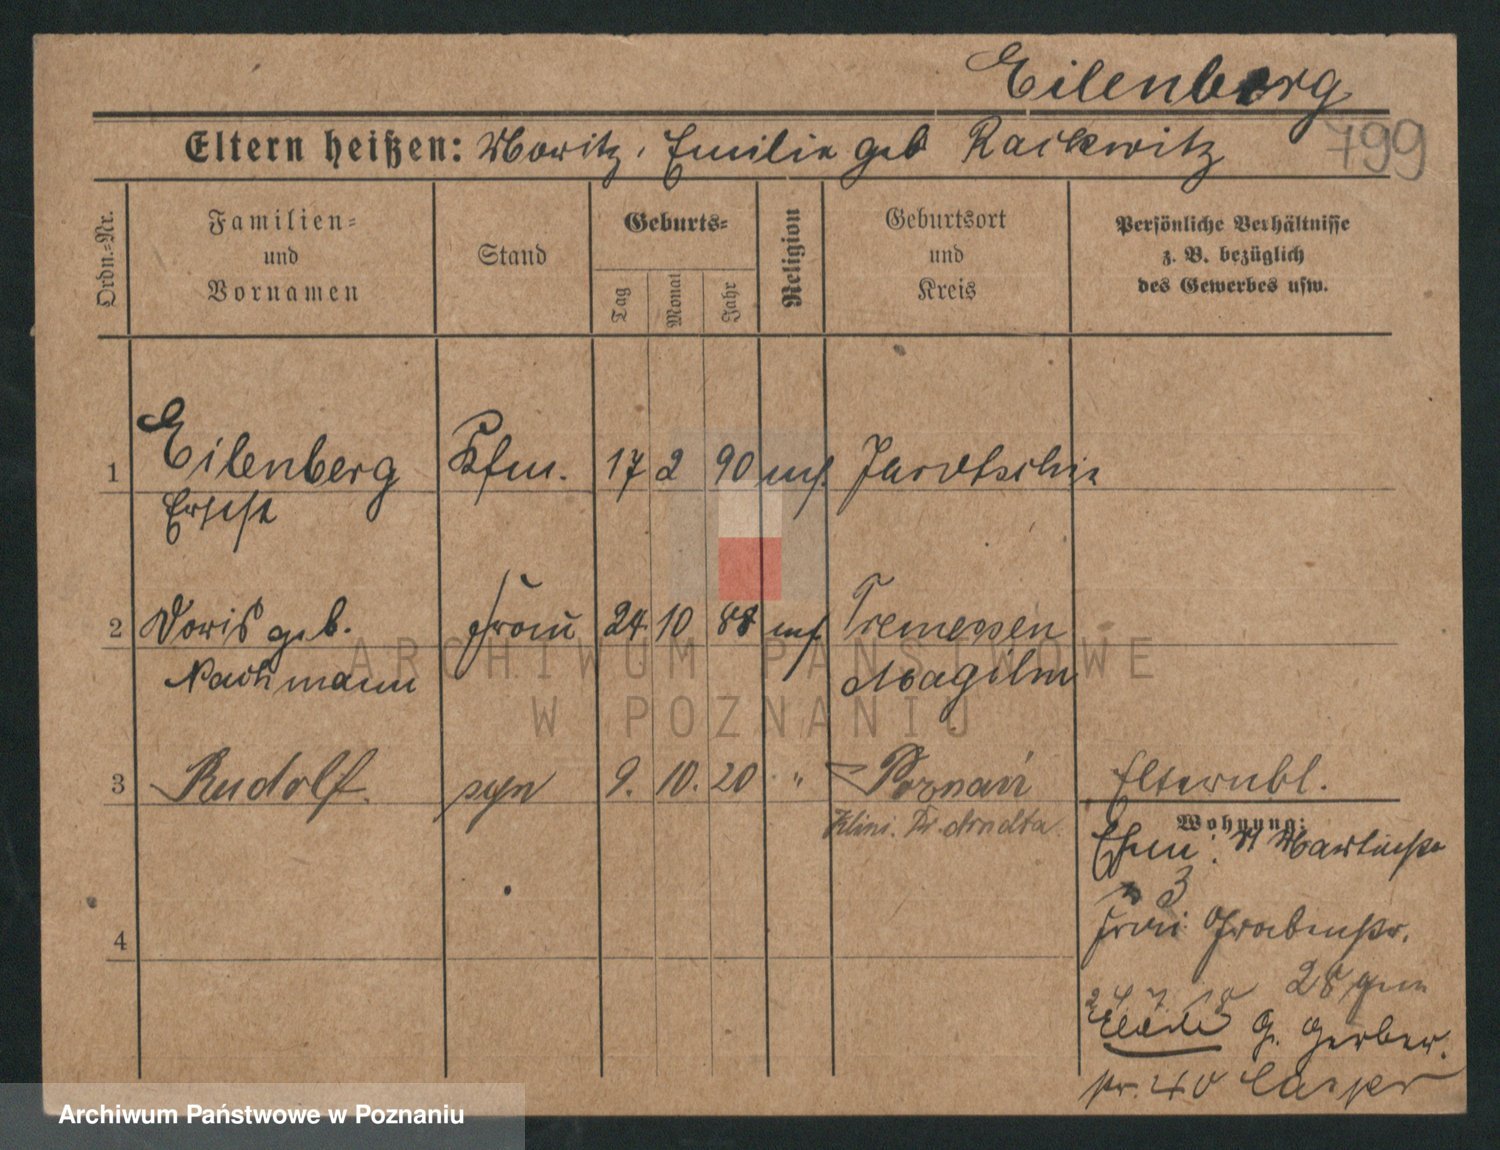 Eilenberg
799
Eltern heißen: Moritz, Emilie geb Rackwitz
Ordn.=Nr.
Familien=
und
Vornamen
Stand
Geburts=
Tag
Monat
Jahr
Religion
Geburtsort
und
Kreis
Persönliche Verhältnisse
z. B. bezüglich
des Gewerbes usw.
1 Eilenberg Kfm. 17 2 90 mos. Jarotschin
Ernst
2 Doris geb. Frau 24 10 88 mos. Tremessen
Nachmann Mogilno
3 Rudolf syn 9. 10. 20 " Poznań Elternbl.
Klini. Dr.
Wohnung:
Ehem: St Martinstr
3
4
Frau Grabenstr.
28
G. Gerber
str. 40
ARCHIWUM PAŃSTWOWE
W POZNANIU
Archiwum Państwowe w Poznaniu